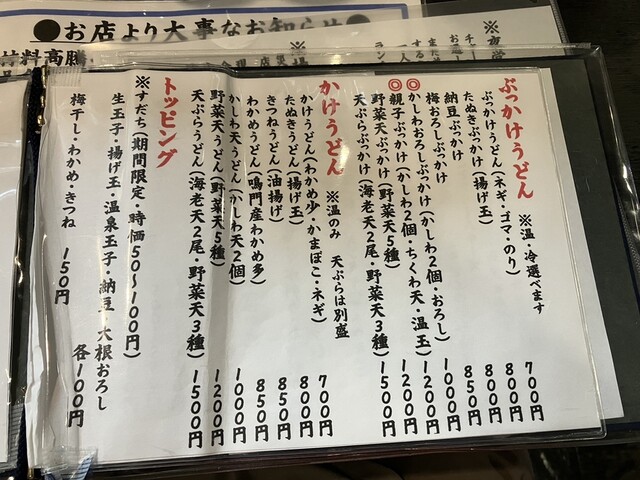 ●お店より大事なお知らせ●
ぶっかけうどん ※温・冷選べます
ぶっかけうどん(ネギ・ゴマ・のり) 700円
たぬきぶっかけ(揚げ玉) 800円
納豆ぶっかけ 850円
梅おろしぶっかけ 850円
◎かしわおろしぶっかけ(かしわ2個・おろし) 1000円
◎親子ぶっかけ(かしわ2個・ちくわ天・温玉) 1200円
野菜天ぶっかけ(野菜天5種) 1200円
天ぷらぶっかけ(海老天2尾・野菜天3種) 1500円
かけうどん ※温のみ 天ぷらは別盛
かけうどん(わかめ少・かまぼこ・ネギ) 700円
たぬきうどん(揚げ玉) 800円
きつねうどん(油揚げ) 850円
わかめうどん(鳴門産わかめ多) 850円
かしわ天うどん(かしわ天2個) 1000円
野菜天うどん(野菜天5種) 1200円
天ぷらうどん(海老天2尾・野菜天3種) 1500円
トッピング
※すだち(期間限定・時価50~100円)
生玉子・揚げ玉・温泉玉子・納豆・大根おろし 各100円
梅干し・わかめ・きつね 150円